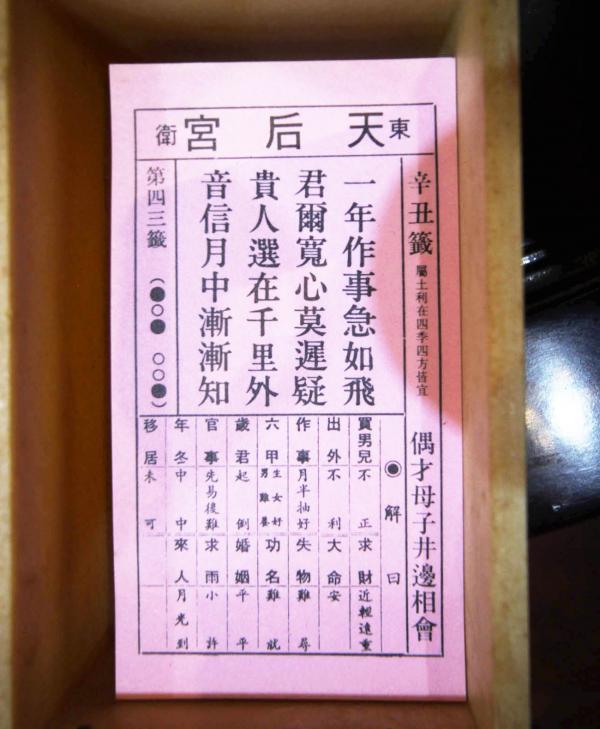 東 天后宮 衛
辛丑籤 屬土利在四季四方皆宜 偶才母子井邊相會
一年作事急如飛
君爾寬心莫遲疑
貴人選在千里外
音信月中漸漸知
第四三籤 (●○● ○○●)
● 解曰
買男兒 不正 求財 近輕遠重
出外 不利 大命 安
作事 月半抽好 失物 難尋
六甲 生女好 男難養 功名 難就
歲君 起倒 婚姻 平平
官事 先易後難 求雨 小許
年冬 中中 來人 月光到
移居 未可